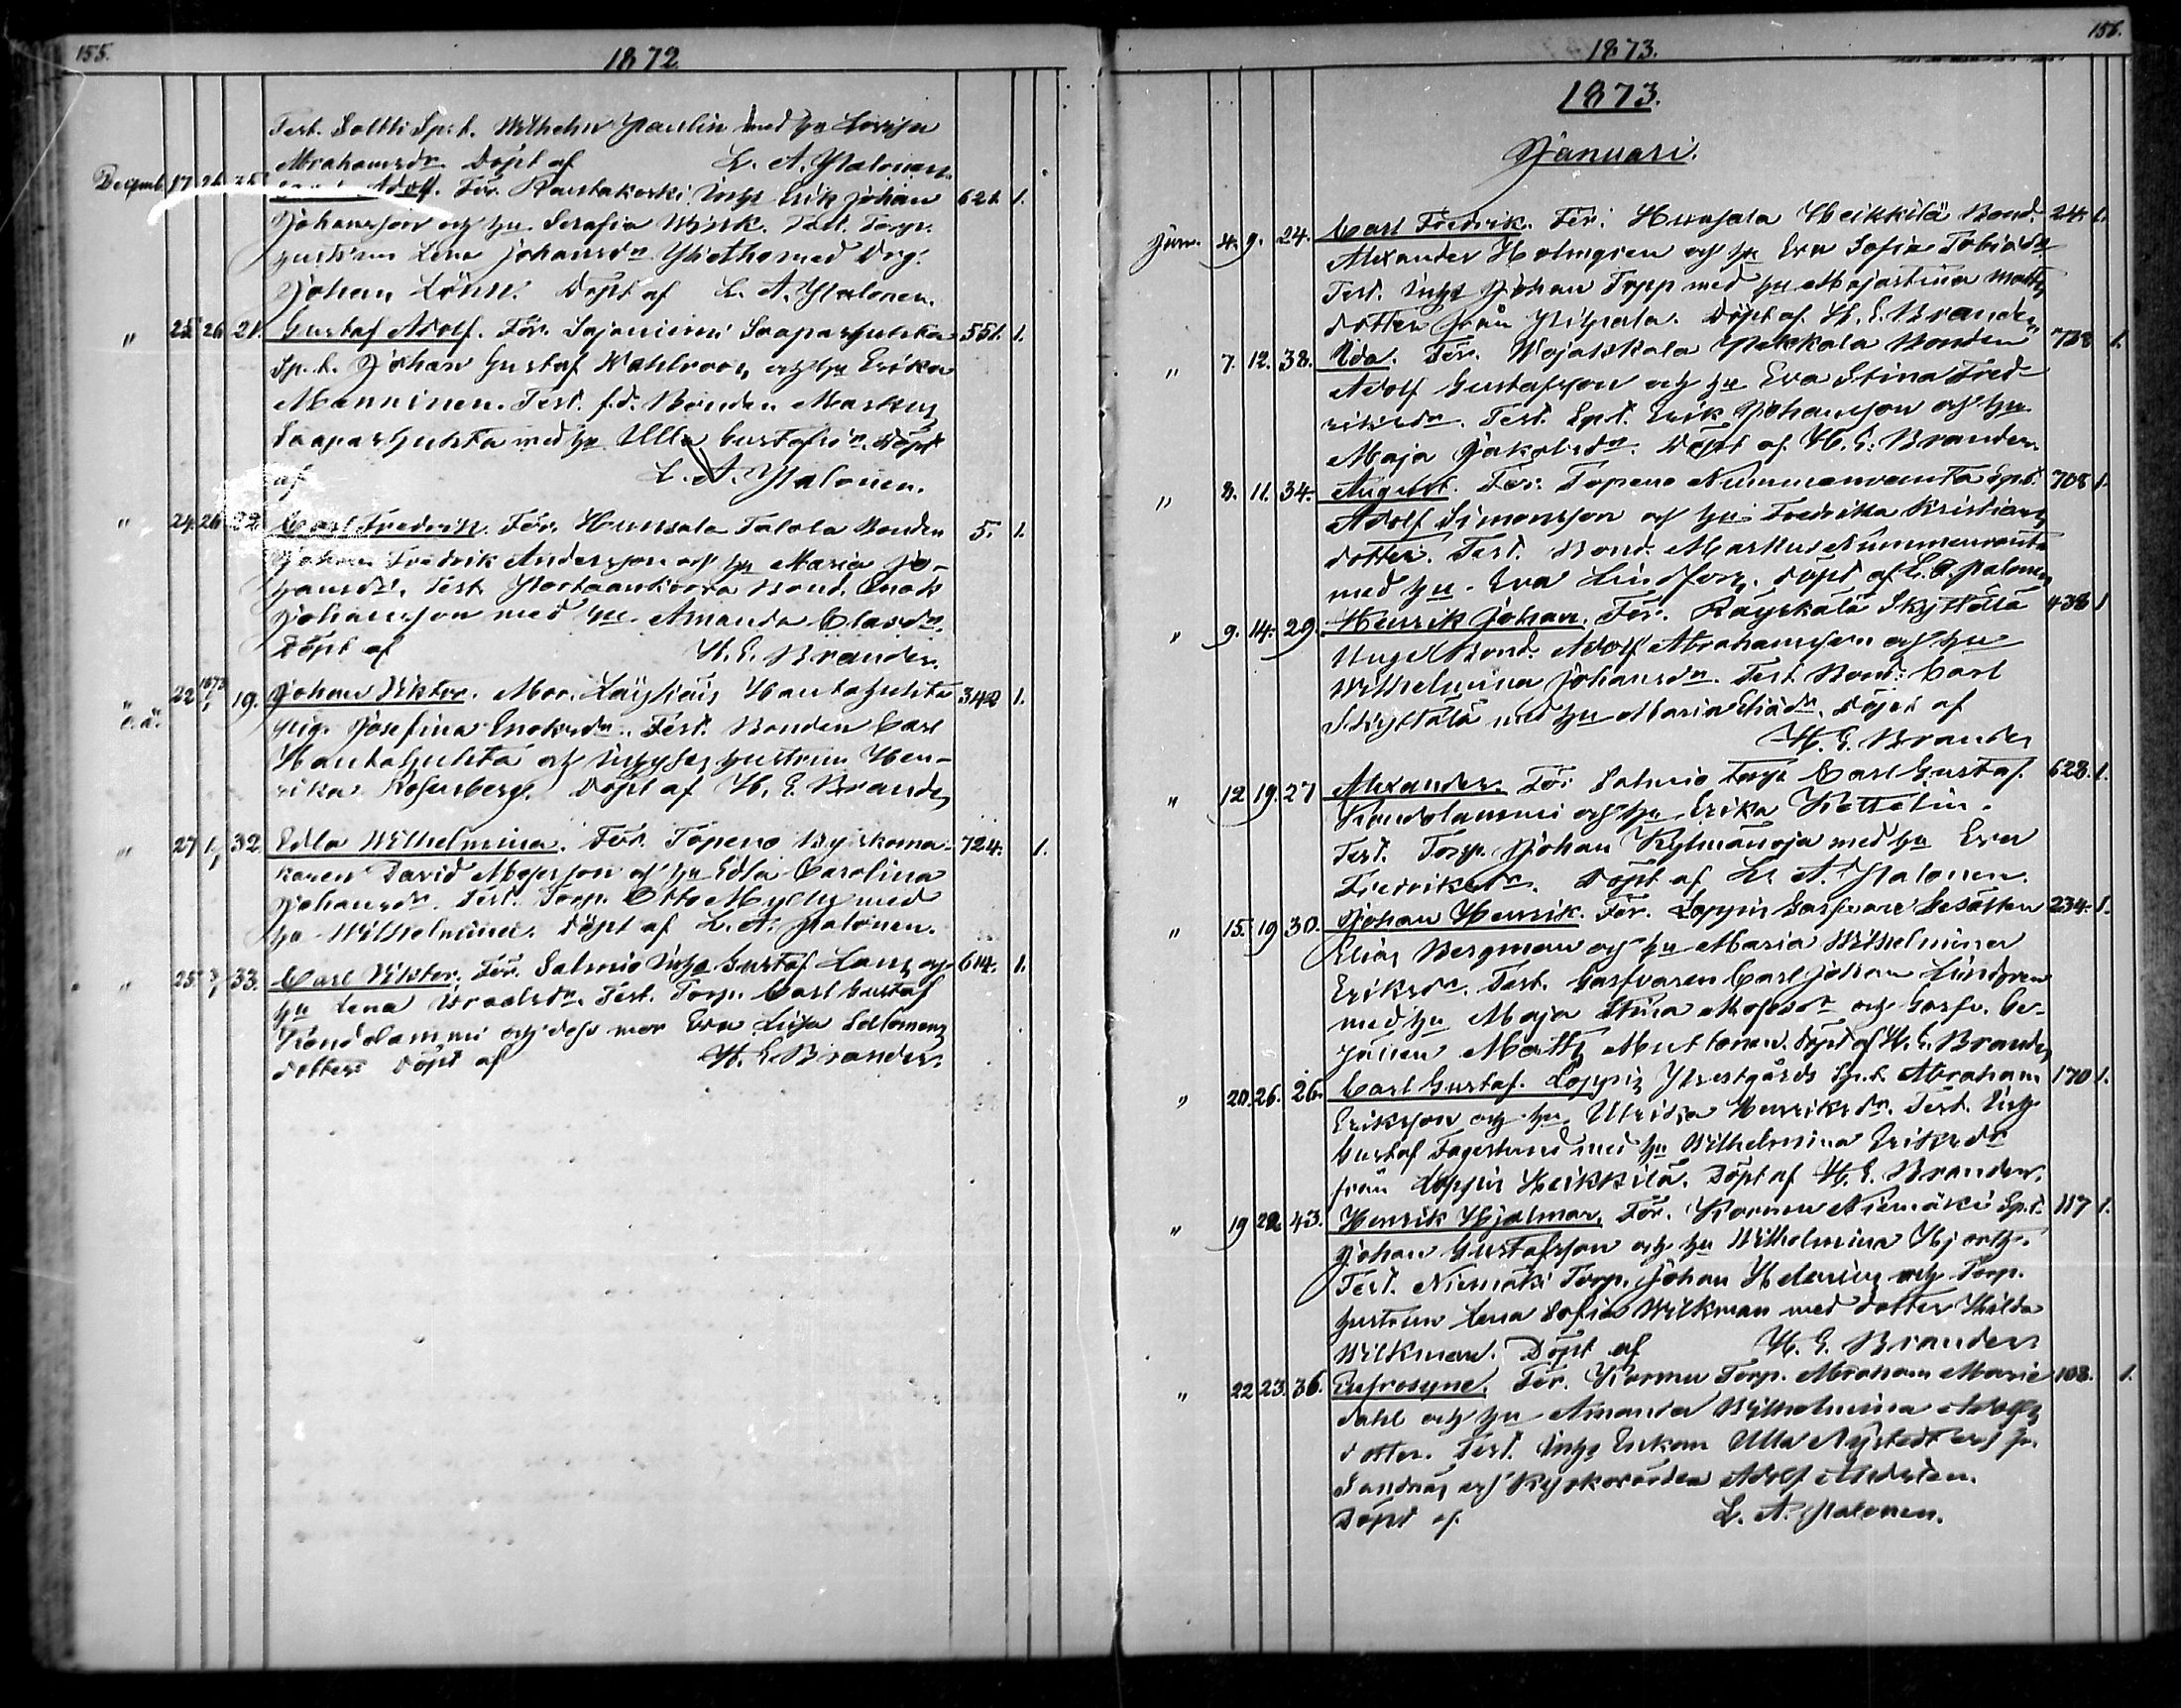 155.
1872
Test. Soltti Sp:t. Wilhelm Paulin med hu Lovisa
Abrahamsdr Döpt af L. A. Palonen.
Decemb. 17 26 Adolf. För. Raustakoski Inhs Erik Johan 621. 1.
Johansson och hu Serafia Wirk. Test. Torp.
hustrun Lena Johansdr med Drg.
Johan Lönn. Döpt af L. A. Palonen.
" 25 26 21. Gustaf Adolf. För. Sajaniemi Saaparhuhta 551. 1.
Sp.t. Johan Gustaf Wahlroos och hu Erika
Manninen. Test. f.d. Bonden Markus
Saaparhuhta med hu Ulla Gustafsdr. Döpt
af L. A. Palonen.
" 24. 26 22 Carl Fredrik. För. Hunsala Talola Bonden 5. 1.
Johan Fredrik Andersson och hu Maria Jo-
hansdr. Test. Bond. Enok
Johansson med hu Amanda Clasdr.
Döpt af H. E. Brander.
" o.ä. 22 1873 19. Johan Viktor. Mor. Läyliäis Hautahuhta 342 1.
pig. Josefina Enoksdr. Test. Bonden Carl
Hautahuhta och hustrun Hen-
rika Rosenberg. Döpt af H. E. Brander
" 27 1/1 32 Edla Wilhelmina. För. Topeno Byskoma- 724. 1.
karen David Mosesson och hu Edla Carolina
Johansdr. Test. Torp. Otto med
hu Wilhelmina. Döpt af L. A. Palonen.
" 25. 33. Carl Viktor. För. Salmio Inhs Gustaf och 614. 1.
hu Lena Test. Torp. Carl Gustaf
Kondolammi och dess mor Eva Lisa Salomons
dotter Döpt af H. E. Brander.
156.
1873.
1873.
Januari.
Jan. 4. 9. 24. Carl Fredrik. För. Hunsala Heikkilä Bond. 24. 1.
Alexander Holmgren och hu Eva Sofia Tobiasdr
Test. Inhs Johan Topp med hu Majastina Matts
dotter från Döpt af H. E. Brander
" 7. 12. 38. Ida. För. Wojakkala Pekkala Bonden 1.
Adolf Gustafsson och hu Eva Stina Fred-
riksdr. Test. Spt. Erik Johansson och hu
Maja Jakobsdr. Döpt af H. E. Brander.
" 8. 11. 34. August. För. Topeno Nummenrauta Spt. 708 1.
Adolf Simonsson och hu Fredrika Kristians
dotter. Test. Bond. Markus Nummenrauta
med hu Eva Lindfors. Döpt af L. A. Palonen
" 9. 14. 29. Henrik Johan. För. Räyskälä Skyttälä 438 1
Ungel Bond. Adolf Abrahamsson och hu
Wilhelmina Johansdr. Test. Bond: Carl
Skyttälä med hu Maria Döpt af
H. E. Brander
" 12 19. 27 Alexander. För. Salmio Torp Carl Gustaf 628. 1.
Kondolammi och hu Erika Kettelin.
Test. Torp. Johan Kylmänoja med hu Eva
Fredriksdr. Döpt af L. A. Palonen.
" 15. 19 30. Johan Henrik. För. Loppis Garfvare Gesällen 234. 1.
Elias Bergman och hu Maria Wilhelmina
Eriksdr. Test. Garfvaren Carl Johan Lindgren
med hu Maja Stina Mosesdr och Garfv. Ge-
sällen Matts Döpt af H. E. Brander
" 20. 26. 26. Carl Gustaf. Loppis Prestgårds Sp.t. Abraham 170 1.
Eriksson och hu Ulrika Henriksdr. Test. Inh
Gustaf Fagerlund med hu Wilhelmina Eriksdr
från Loppis Heikkilä. Döpt af H. E. Brander.
" 19 22 43. Henrik Hjalmar. För. Kormu Niemäki Sp.t. 117 1.
Johan Gustafsson och hu Wilhelmina Hjorth.
Test. Niemäki Torp. Johan Helenius och Torp.
hustrun Lena Sofia Wilkman med dotter Hilda
Wilkman. Döpt af H. E. Brander
" 22 23. 36. Eufrosyne. För. Kormu Torp. Abraham Marie 108. 1.
dahl och hu Amanda Wilhelmina Adolfs
dotter. Test. Inhs Enkan Ulla Nystedt
och Kyrkovärden Adolf
Döpt af L. A. Palonen.